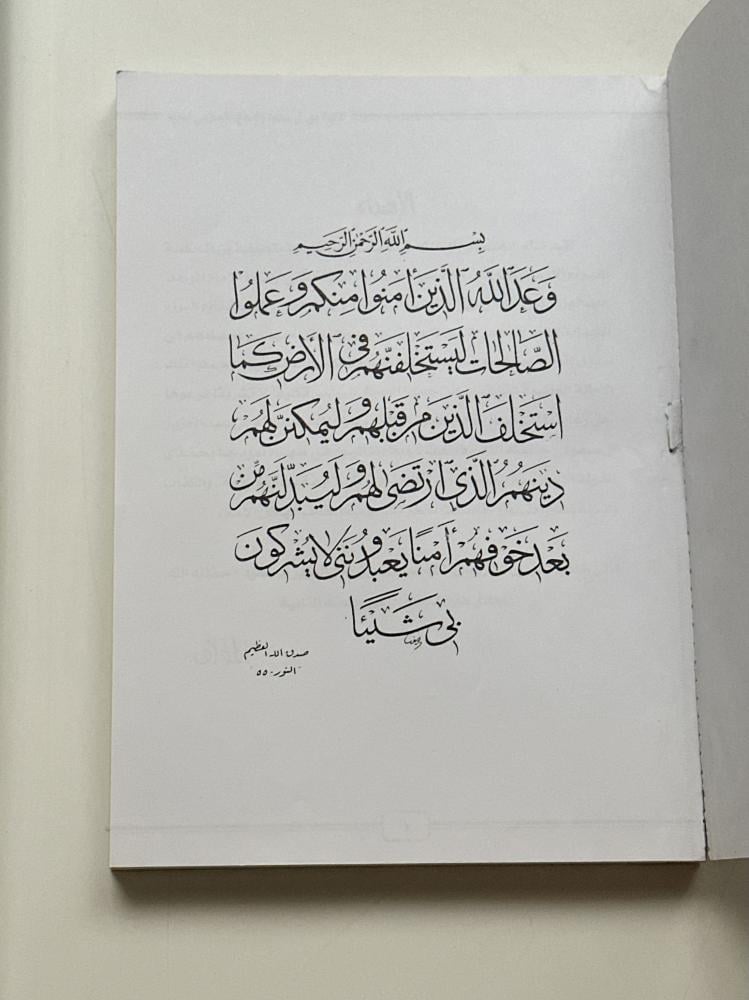 بِسْمِ اللَّهِ الرَّحْمٰنِ الرَّحِيمِ
وَعَدَ اللَّهُ الَّذِينَ آمَنُوا مِنكُمْ وَعَمِلُوا
الصَّالِحَاتِ لَيَسْتَخْلِفَنَّهُمْ فِي الْأَرْضِ كَمَا
اسْتَخْلَفَ الَّذِينَ مِن قَبْلِهِمْ وَلَيُمَكِّنَنَّ لَهُمْ
دِينَهُمُ الَّذِي ارْتَضَىٰ لَهُمْ وَلَيُبَدِّلَنَّهُم مِّن
بَعْدِ خَوْفِهِمْ أَمْنًا يَعْبُدُونَنِي لَا يُشْرِكُونَ
بِي شَيْئًا
صدق الله العظيم
"النور - ٥٥"